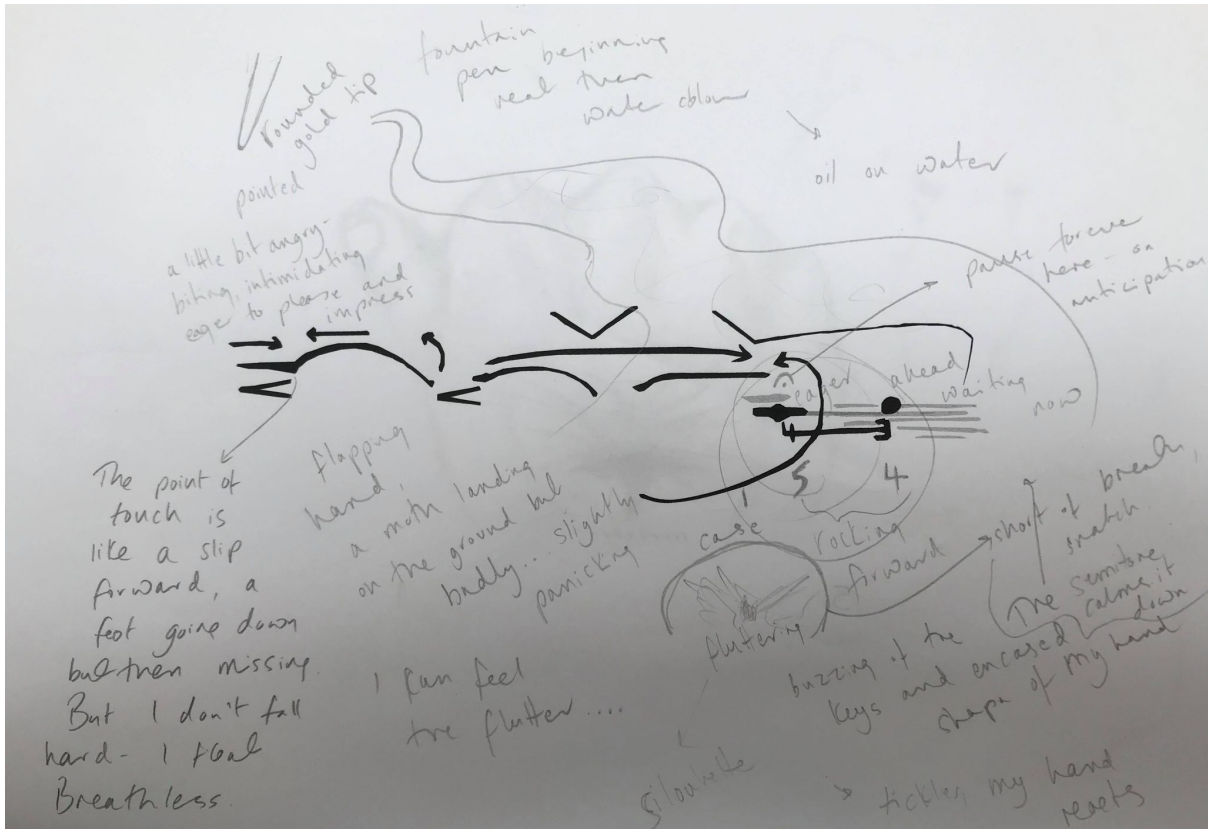 fountain
pen beginning
real then
water colour
rounded
gold tip
pointed
a little bit angry-
biting, intimidating
eager to please and
impress
oil on water
pause forever
here - an
anticipation
eager ahead
waiting
now
5 4
The point of
touch is
like a slip
forward, a
foot going down
but then missing.
But I don't fall
hard - I float
Breathless.
flapping
hand,
a moth landing
on the ground but
badly... slightly
panicking
case
rocking
forward
short of breath,
snatch.
The semitone
calms it
down
fluttering
buzzing of the
keys and encased
shape of my hand
I can feel
the flutter....
silouhette
tickles, my hand
reacts